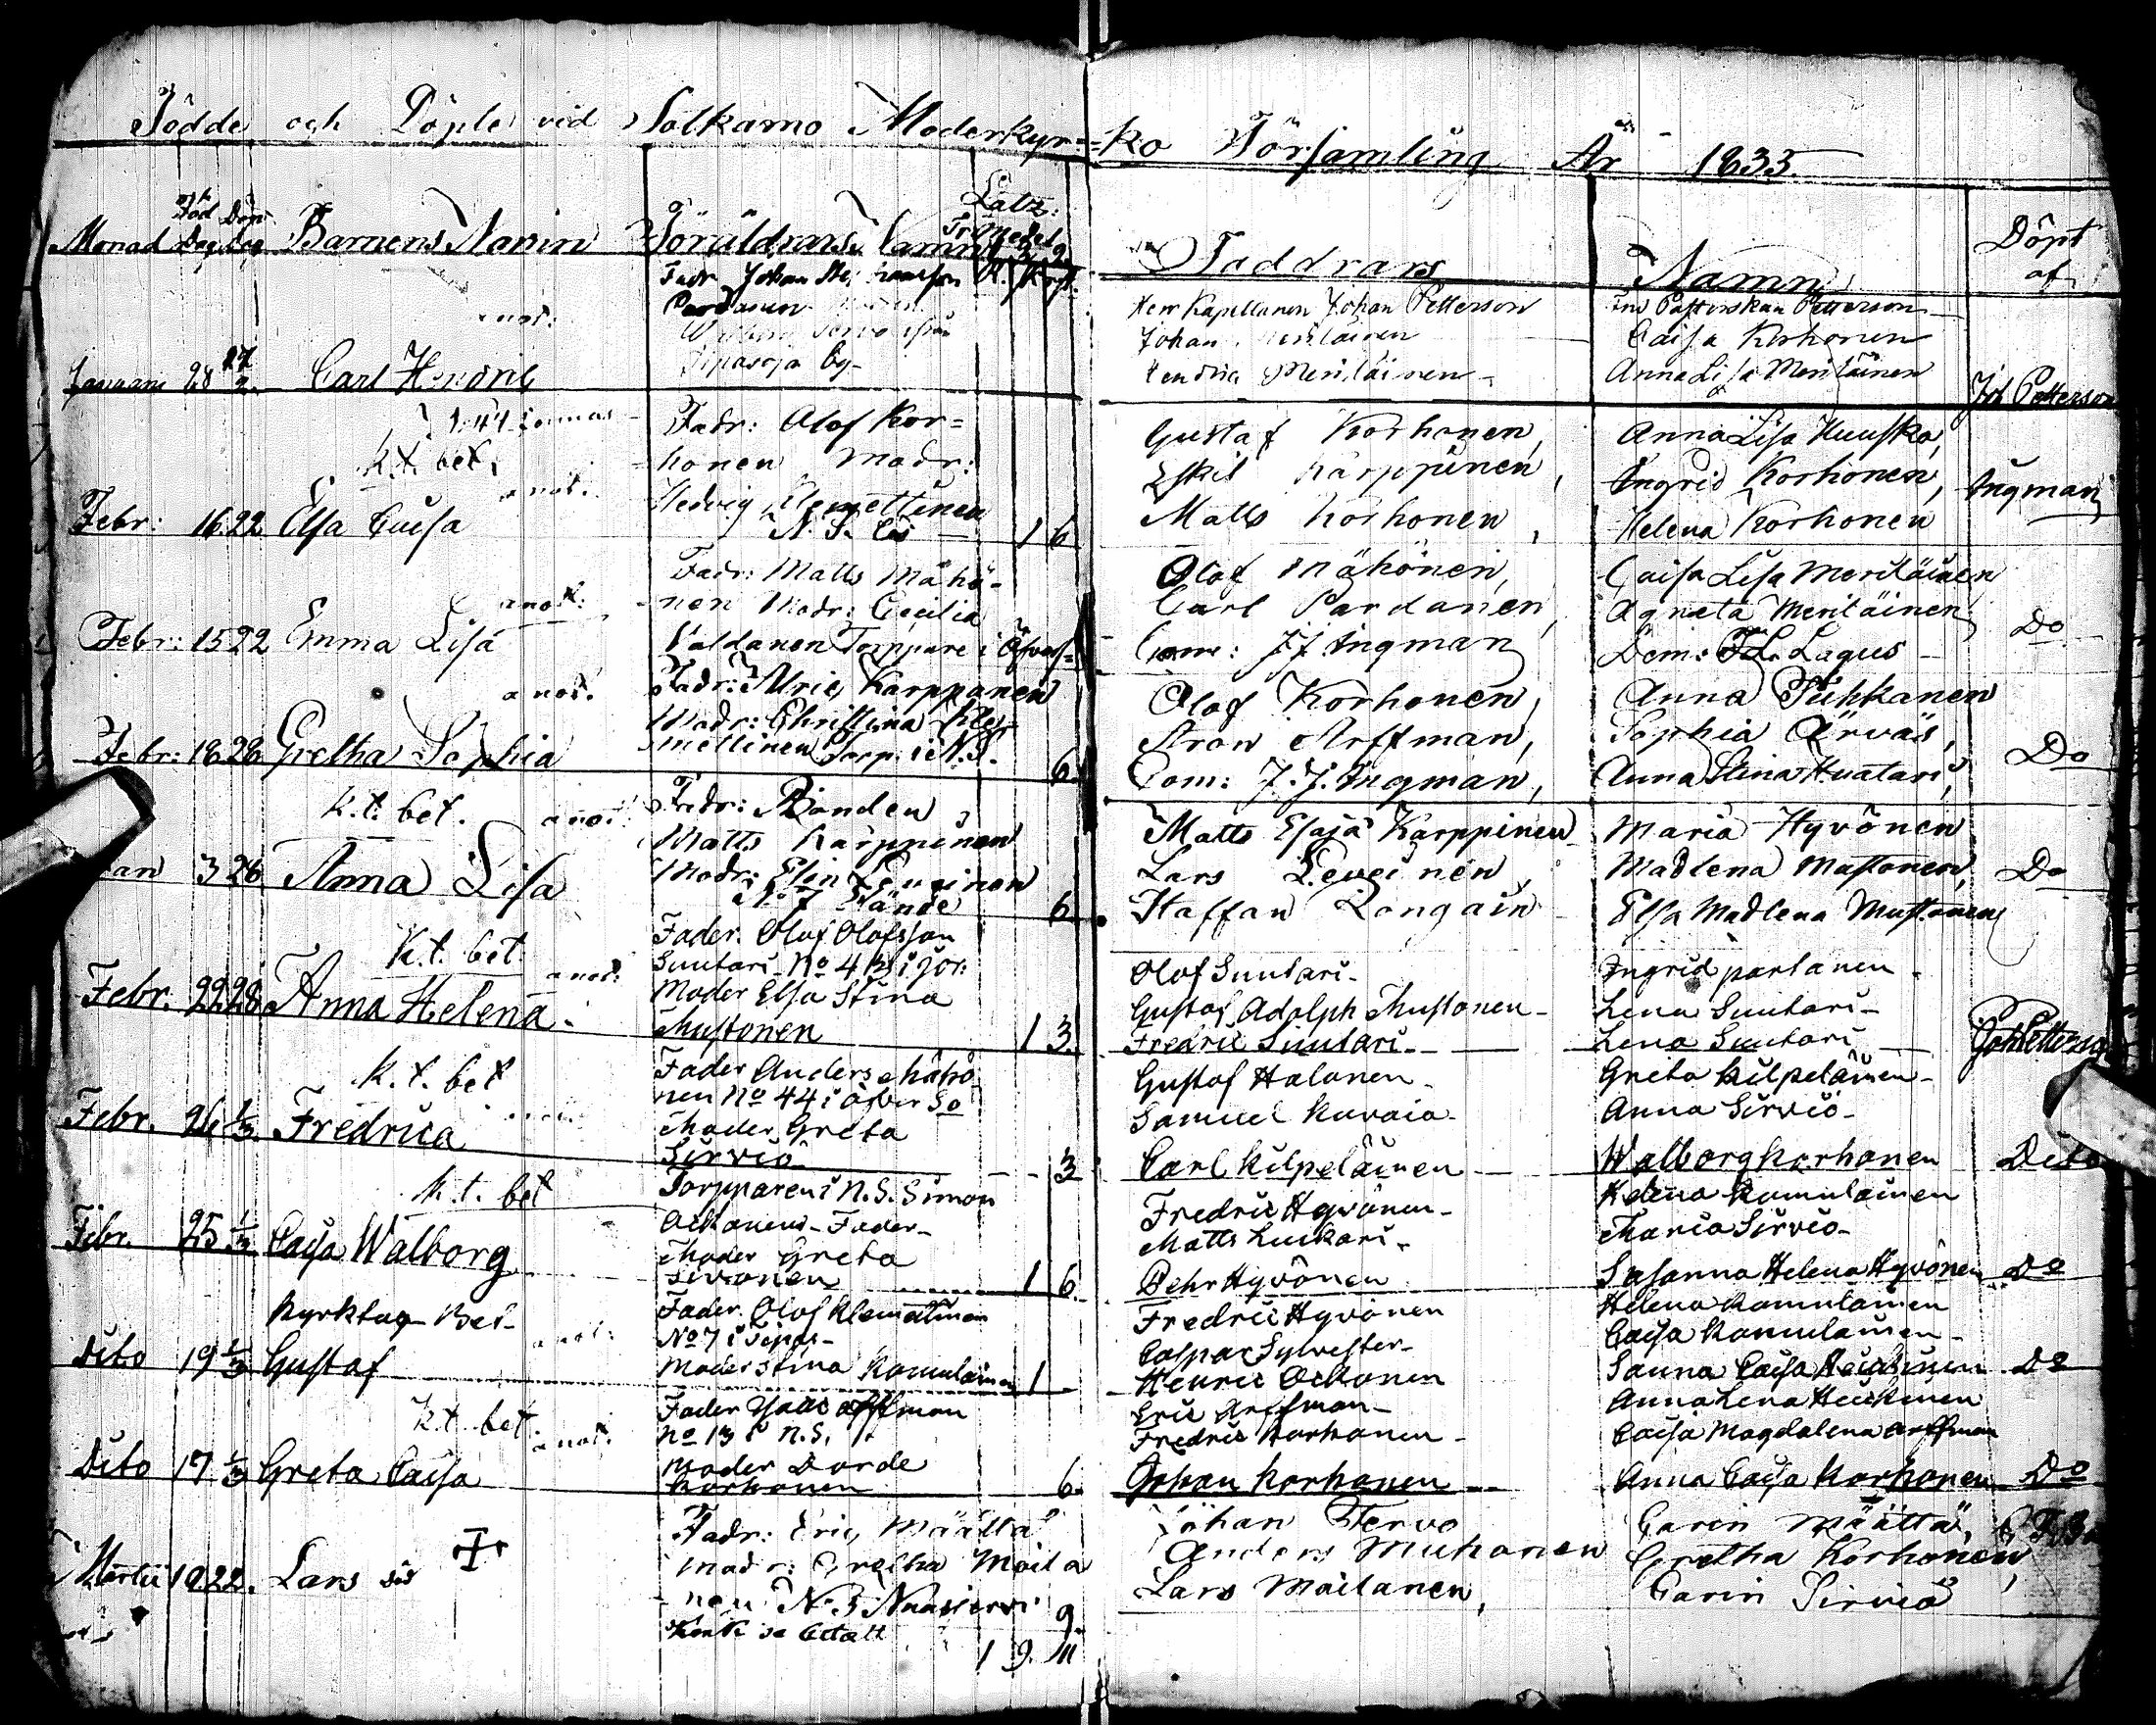 Födde och Döpte vid Sotkamo Moderkyr=
=ko Församling År 1833.
Monad Född Dag Döp. Dag Barnens Namn Föräldrars Namn
Faddrars Namn Döpt af
Januarii 28 17/2. Carl Henric
anot:
Fadr Johan
Pardanen
by-
Herr Kapellanen Johan Petterson
Johan Meriläinen
Hendric Meriläinen-
Fru Pastorskan Petterson-
Caisa Korhonen
Anna Lisa Meriläinen
Joh Petterson
k.t. bet.
anot.
Febr: 16 22 Elsa Caisa
Fadr: Olof Kor=
honen Modr:
Hedvig Klemettinen
N. S.
1 6
Gustaf Korhonen,
Eskil Karppinen,
Matts Korhonen,
Anna Lisa Huusko,
Ingrid Korhonen,
Helena Korhonen
Ingman
anot:
Febr: 15 22 Emma Lisa
Fadr: Matts Mähö-
nen Modr: Cecilia
Valdanen Torppare i
Olof Mähönen,
Carl Pardanen,
Com: J J Ingman
Caisa Lisa Meriläinen
Agneta Meriläinen
Dem: Lagus
Do
anot.
Febr: 18 28 Gretha Sophia
Fadr: Eric Karppanen
Modr: Christina Kle-
mettinen Torp. i N. S.
6.
Olof Korhonen,
Aron Arffman,
Com: J. J. Ingman,
Anna Puhkanen
Sophia Ärväs,
Anna Stina Huatari,
Do
k.t. bet. anot.
Jan 3 26 Anna Lisa
Fadr: Bonden
Matts Karppinen
Modr: Elin Leveinen
6
Matts Esaja Karppinen
Lars Leveinen,
Staffan Rongain
Maria Hyvönen
Madlena Mustonen,
Elsa Madlena Mustonen
Do
K.t. bet.
anot:
Febr. 22 28 Anna Helena.
Fader. Olof Olofsson
Suutari No 4 i Jor:
Moder Elsa Stina
Mustonen
1 3.
Olof Suutari-
Gustaf Adolph Mustonen-
Fredric Suutari-
Ingrid partanen.
Lena Suutari-
Lena Suutari
Joh Petterson
k.t. bet
Febr. 26 1/3. Fredrica
Fader Anders Mähö
nen No 44 i Öfver So
Moder Greta
Sirviö
3
Gustaf Halonen-
Samuel Kuvaia-
Carl Kilpeläinen
Greta Kilpeläinen-
Anna Sirviö-
Walborg Korhonen
Dito
k.t. bet
Febr. 25 1/3 Caisa Walborg
Torpparen i N. S. Simon
Ackonens- Fader-
Moder Greta
Sivonen
1 6.
Fredric Hyvönen-
Matts Luikari-
Pehr Hyvönen
Helena Komulainen
Maria Sirviö-
Susanna Helena Hyvönen
Do
Kyrktag- Bet-
anot:
Dito 19 1/3 Gustaf
Fader Olof Klemättinen
No 7 i Sipas-
Moder Stina Komulainen
1
Fredric Hyvönen
Caspar Sylvester-
Henric Ackonen
Helena Komulainen
Caisa Komulainen-
Sanna Caisa Heickinen
Do
k.t. bet.
anot.
Dito 17 1/3 Greta Caisa
Fader Arffman
No 13 i N. S.
Moder Dorde
Korhonen
6.
Eric Arffman-
Fredric Korhonen-
Johan Korhonen
Anna Lena Heickinen
Caisa Magdalena Arffman
Anna Caisa Korhonen
Do
Martii 19 22. Lars
Fadr: Eric Määttä
Modr: Gretha Moila
nen N. 3
9.
1 9. 11
Johan Tervo
Anders Muhonen
Lars Moilanen,
Carin Määttä,
Gretha Korhonen,
Carin Sirviö